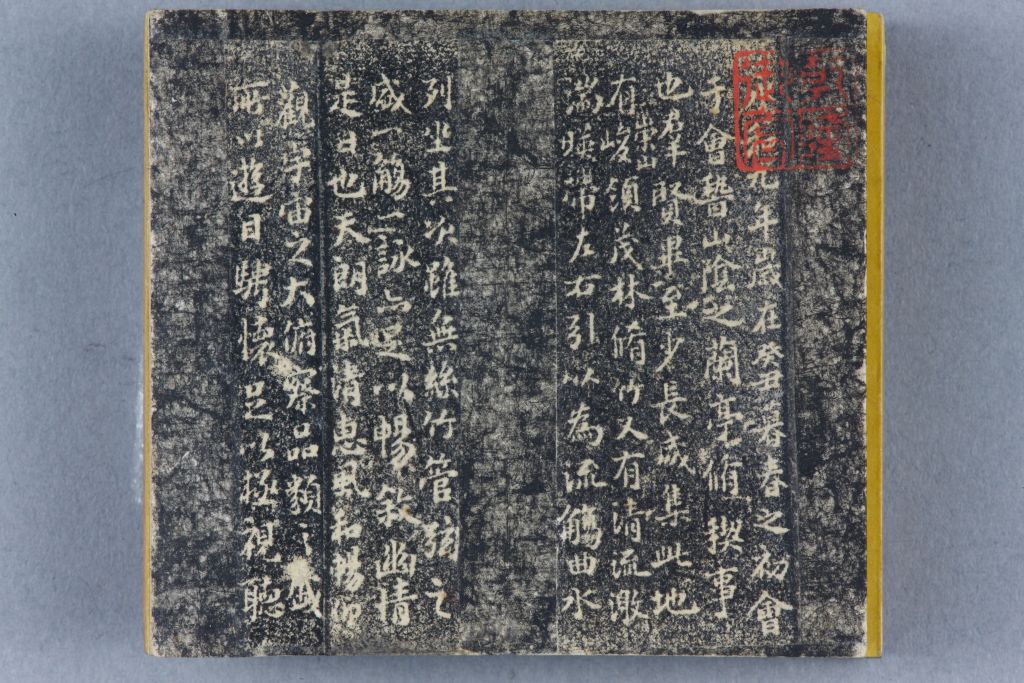 永和九年歲在癸丑暮春之初會
于會稽山陰之蘭亭脩禊事
也羣賢畢至少長咸集此地
有崇山峻領茂林脩竹又有清流激
湍暎帶左右引以為流觴曲水
列坐其次雖無絲竹管弦之
盛一觴一詠亦足以暢敘幽情
是日也天朗氣清惠風和暢仰
觀宇宙之大俯察品類之盛
所以遊目騁懷足以極視聽